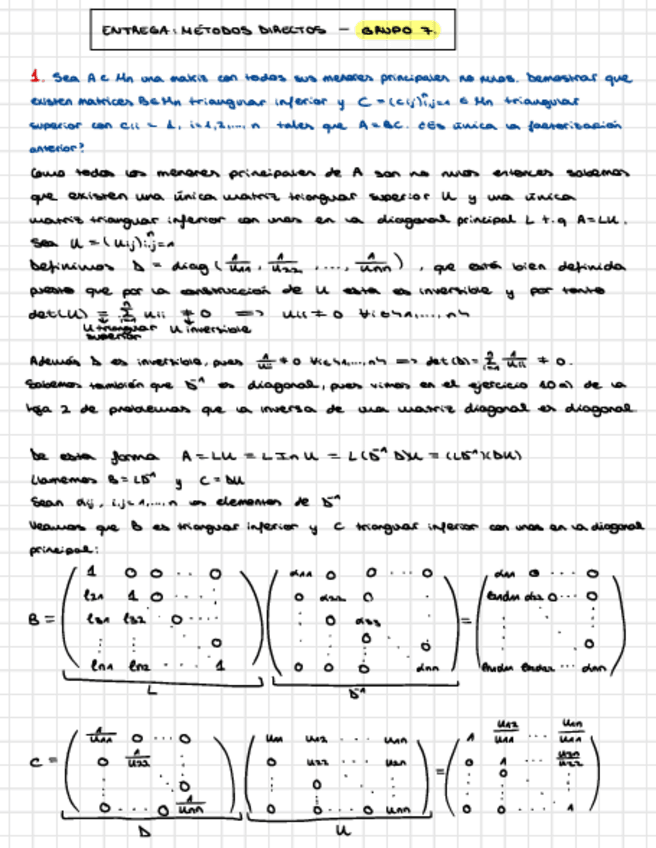 ENTREGA: MÉTODOS DIRECTOS — GRUPO 7.
1. Sea A ∈ Mn una matriz con todos sus menores principales no nulos. Demostrar que
existen matrices B ∈ Mn triangular inferior y C = (cij)ⁿi,j=1 ∈ Mn triangular
superior con cii = 1, i=1,2,...,n tales que A=BC. ¿Es única la factorización
anterior?
Como todos los menores principales de A son no nulos entonces sabemos
que existen una única matriz triangular superior U y una única
matriz triangular inferior con unos en la diagonal principal L t.q A=LU.
Sea U = (uij)ⁿi,j=1
Definimos D = diag (1/u11, 1/u22, ..., 1/unn), que está bien definida
puesto que por la construcción de U esta es inversible y por tanto
det(U) = ∏ⁿi=1 uii ≠ 0 => uii ≠ 0 ∀i∈{1,...,n}
U triangular U inversible
superior
Además D es inversible, pues 1/uii ≠ 0 ∀i∈{1,...,n} => det(D) = ∏ⁿi=1 1/uii ≠ 0.
Sabemos también que D⁻¹ es diagonal, pues vimos en el ejercicio 10 a) de la
hoja 2 de problemas que la inversa de una matriz diagonal es diagonal
De esta forma A = LU = L In U = L(D⁻¹ D)U = (LD⁻¹)(DU)
Llamemos B = LD⁻¹ y C = DU
Sean dij, i,j=1,...,n los elementos de D⁻¹
Veamos que B es triangular inferior y C triangular inferior con unos en la diagonal
principal:
1 0 0 ... 0 d11 0 0 ... 0 d11 0 ... 0
l21 1 0 0 d22 0 l21d11 d22 0 ... 0
B = l31 l32 0 ... 0 d33 =
0 0 0 0
ln1 ln2 ... 1 0 0 0 dnn ln1d11 ln2d22 ... dnn
L D⁻¹
1/u11 0 ... 0 u11 u12 ... u1n 1 u12/u11 ... u1n/u11
C = 0 1/u22 0 u22 ... u2n = 0 1 u2n/u22
0 0 0
0 ... 0 1/unn 0 0 ... 0 unn 0 0 ... 1
D U